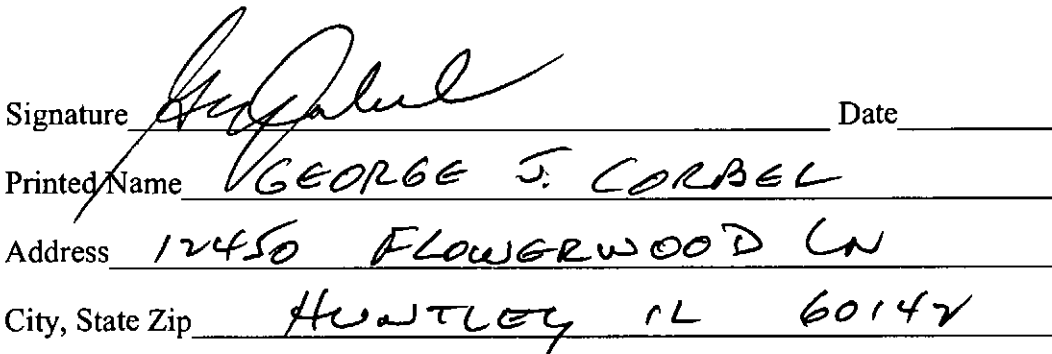 Signature Date
Printed Name GEORGE J. CORBEL
Address 12450 FLOWERWOOD LN
City, State Zip HUNTLEY IL 60142